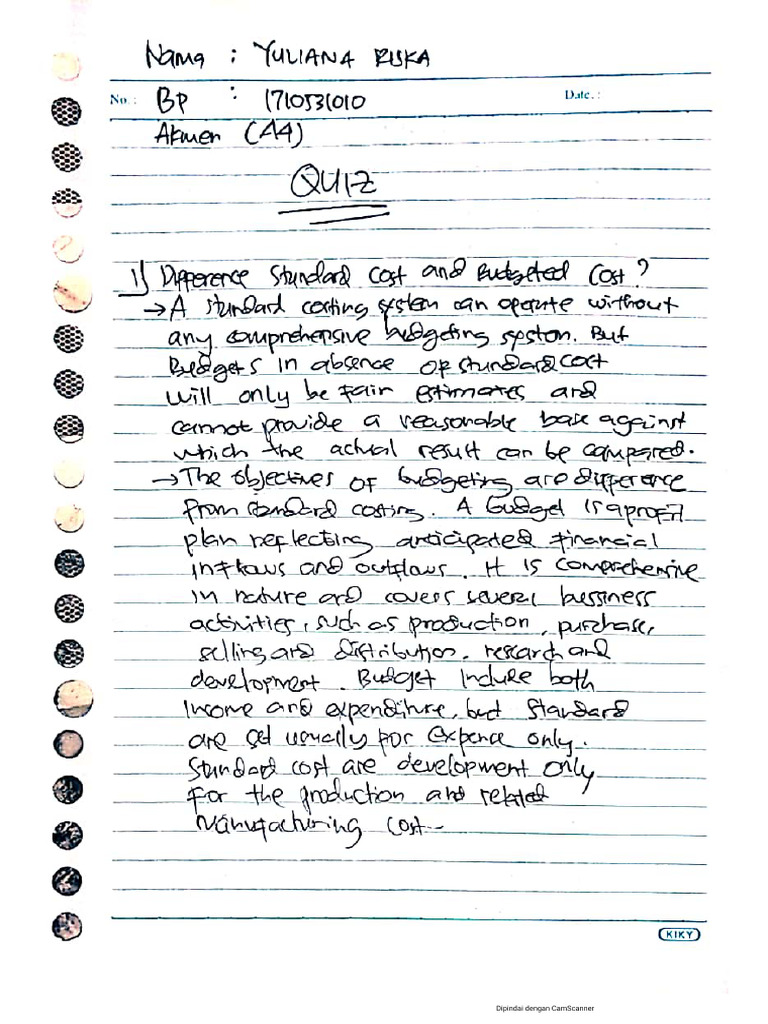 Nama : YULIANA RISKA
No. : BP : 1710531010 Date. :
Akmen (A4)
QUIZ
1) Difference Standard Cost and Budgeted Cost?
→ A standard costing system can operate without
any comprehensive budgeting system. But
Budgets in absence of standard cost
will only be fair estimates and
cannot provide a reasonable base against
which the actual result can be compared.
→ The objectives of budgeting are difference
from standard costing. A budget is a profit
plan reflecting anticipated financial
inflows and outflows. It is comprehensive
in nature and covers several bussiness
activities, such as production, purchase,
selling and distribution, research and
development. Budget include both
income and expenditure, but standard
are set usually for expence only.
Standard cost are development only
for the production and related
manufacturing cost
KIKY
Dipindai dengan CamScanner